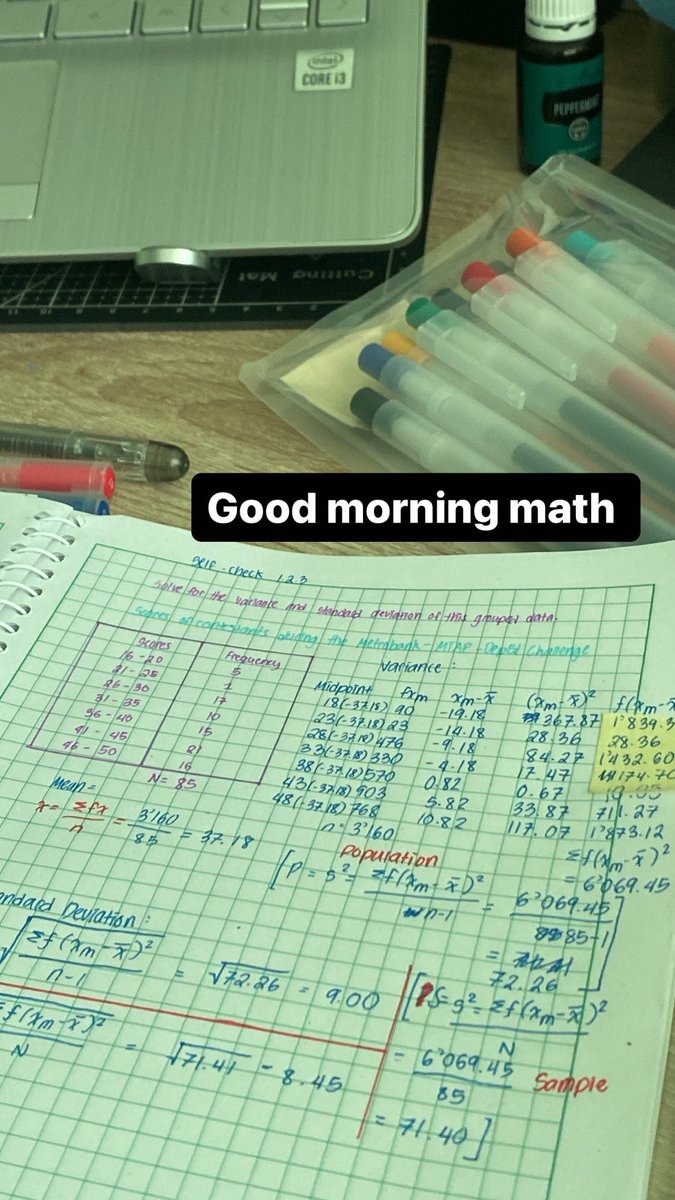 intel
CORE i3
PEPPERMINT
Cutting Mat
Good morning math
Self-check 1.2.3
Solve for the variance and standard deviation of this grouped data.
Scores of contestants during the Metrobank-MTAP-DepEd Challenge
Scores Frequency
16-20 5
21-25 1
26-30 17
31-35 10
36-40 15
41-45 21
46-50 16
N = 85
Variance:
Midpoint fxm xm-x̄ (xm-x̄)² f(xm-x̄
18(-37.18) 90 -19.18 367.87 1'839.3
23(-37.18) 23 -14.18 28.36 28.36
28(-37.18) 476 -9.18 84.27 1'432.60
33(-37.18) 330 -4.18 17.47 174.70
38(-37.18) 570 0.82 0.67
43(-37.18) 903 5.82 33.87 711.27
48(-37.18) 768 10.82 117.07 1'873.12
n = 3'160
Σf(xm-x̄)²
= 6'069.45
Mean=
x̄ = Σfx/n = 3'160/85 = 37.18
Population
[P = s² = Σf(xm-x̄)²/n-1 = 6'069.45/85-1
= 72.26]
ndard Deviation:
√Σf(xm-x̄)²/n-1 = √72.26 = 9.00
Σf(xm-x̄)²/N = √71.41 - 8.45
[S = s² = Σf(xm-x̄)²/N
= 6'069.45/85 Sample
= 71.40]